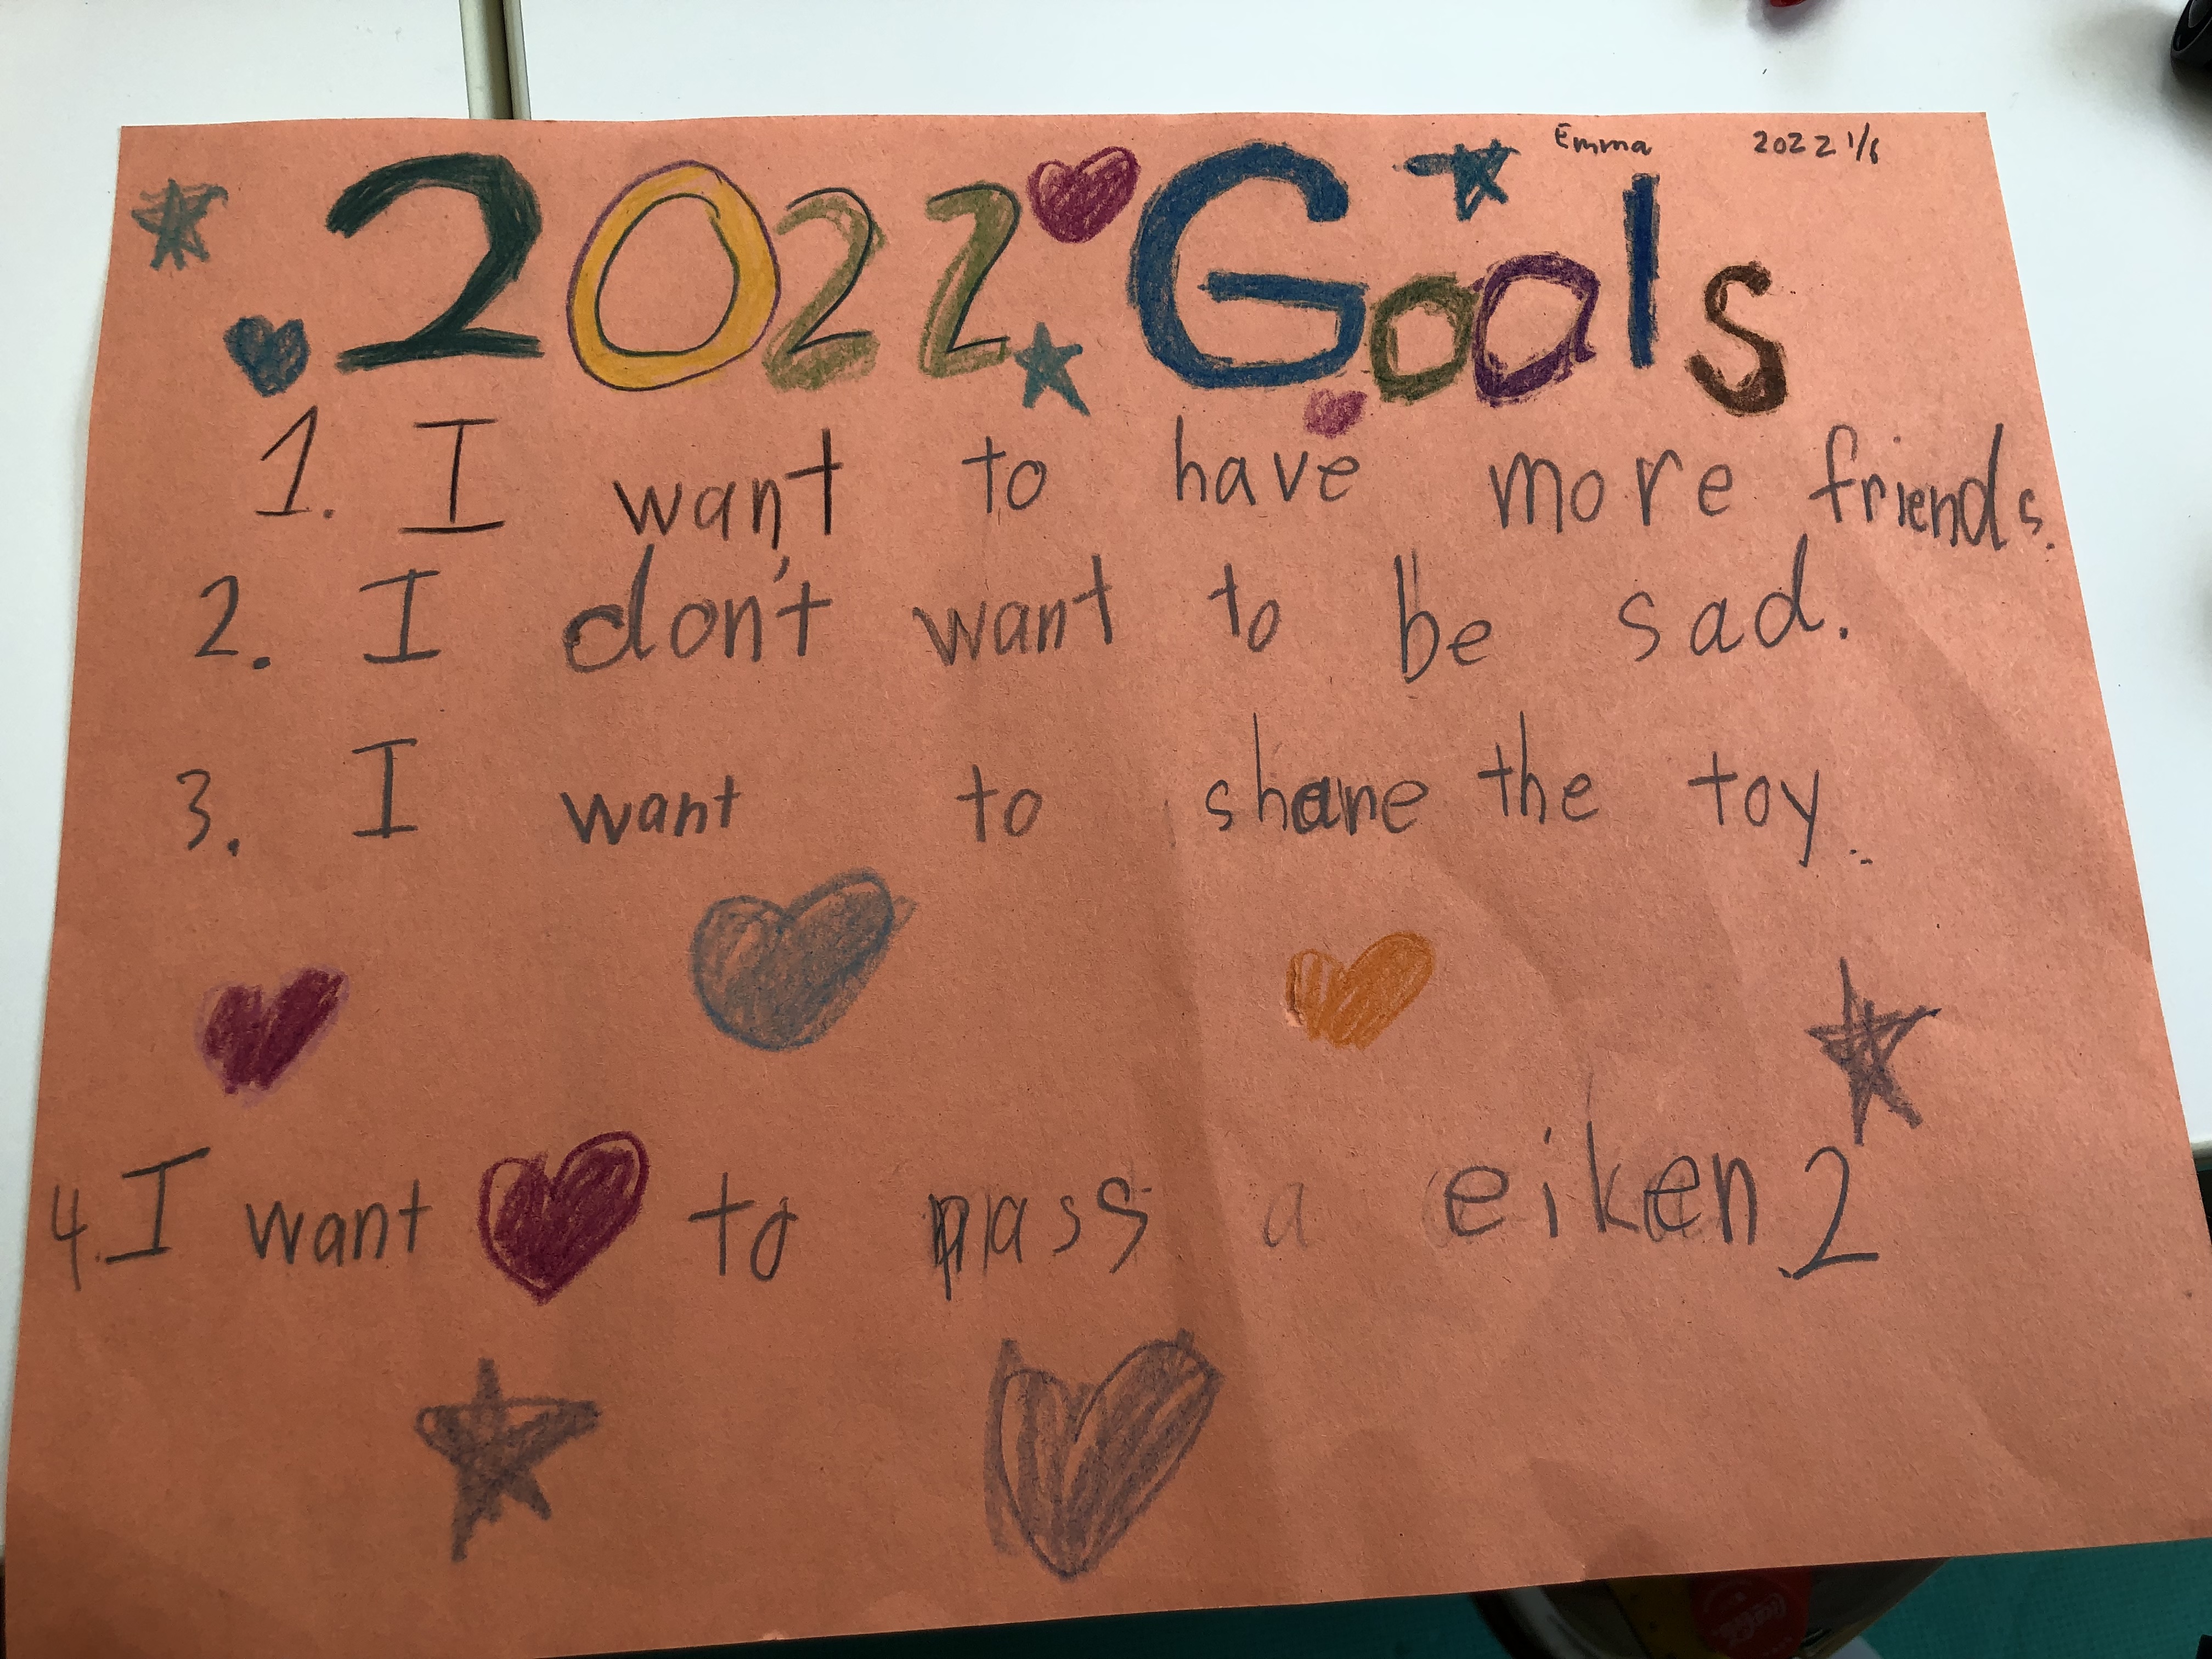 Emma 2022 1/6
2022 Goals
1. I want to have more friends.
2. I don't want to be sad.
3. I want to share the toy.
4. I want to pass a eiken 2